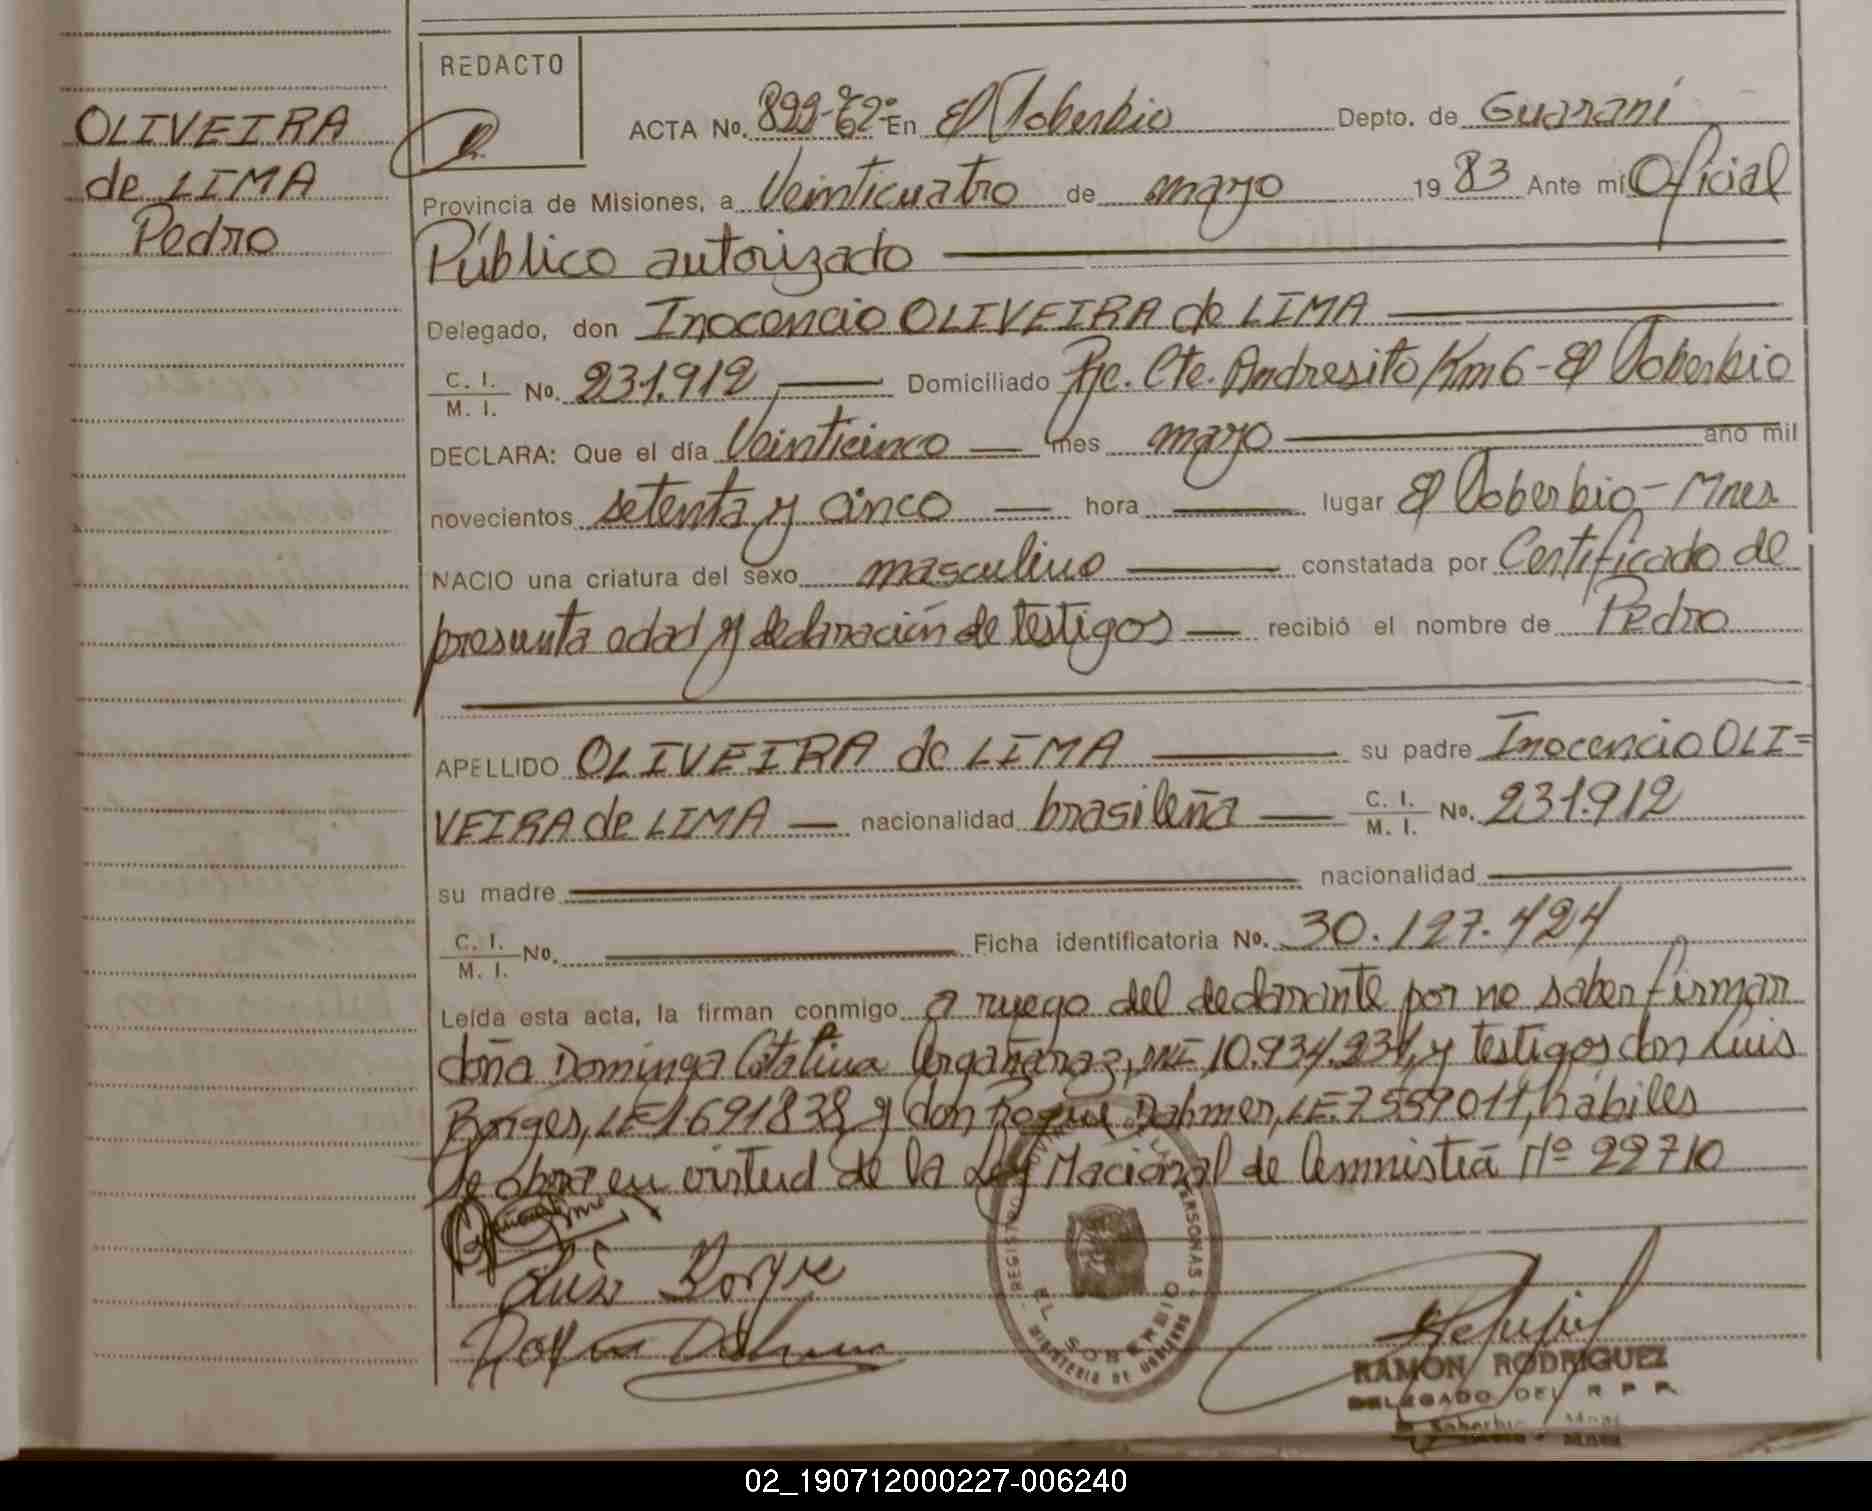 REDACTO
OLIVEIRA
de LIMA
Pedro
ACTA No. 899-62º En El Soberbio Depto. de Guaraní
Provincia de Misiones, a Veinticuatro de mayo 19 83 Ante mí Oficial
Público autorizado
Delegado, don Inocencio OLIVEIRA de LIMA
C. I. / M. I. No. 231.912 Domiciliado Pje. Cte. Andresito Km 6 - El Soberbio
DECLARA: Que el día Veinticinco mes mayo año mil
novecientos setenta y cinco hora lugar El Soberbio - Mnes
NACIO una criatura del sexo masculino constatada por Certificado de
presunta edad y declaración de testigos recibió el nombre de Pedro
APELLIDO OLIVEIRA de LIMA su padre Inocencio OLI=
VEIRA de LIMA nacionalidad brasileña C. I. / M. I. No. 231.912
su madre nacionalidad
C. I. / M. I. No. Ficha identificatoria No. 30.127.424
Leída esta acta, la firman conmigo a ruego del declarante por no saber firmar
doña Dominga Catalina Argañaraz, DNI 10.934.234, y testigos don Luis
Borges, LE 1691838 y don Roque Dahmer, LE. 7559011, hábiles
Se obra en virtud de la Ley Nacional de Amnistía Nº 22710
Luis Borge
REGISTRO PERSONAS
EL SOBERBIO
MINISTERIO DE GOBIERNO
RAMON RODRIGUEZ
DELEGADO DEL R P P.
El Soberbio - Mnes
02_190712000227-006240